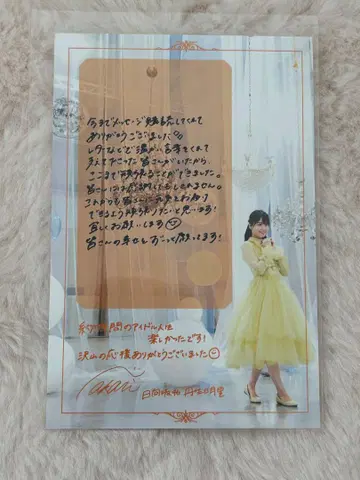 今までメッセージ購読してくれて
ありがとうございました!!
レターなどで温かい言葉をくれて
支えて下さった皆さんがいたから、
ここまで頑張ることができました。
皆さんには感謝してもしきれません。
これからも皆さんに元気をお届け
できるよう頑張りたいと思います!
宜しくお願いします
皆さんの幸せずっと願ってます!
年間のアイドル人生
楽しかったです!
沢山の応援ありがとうございました
日向坂46 丹生明里